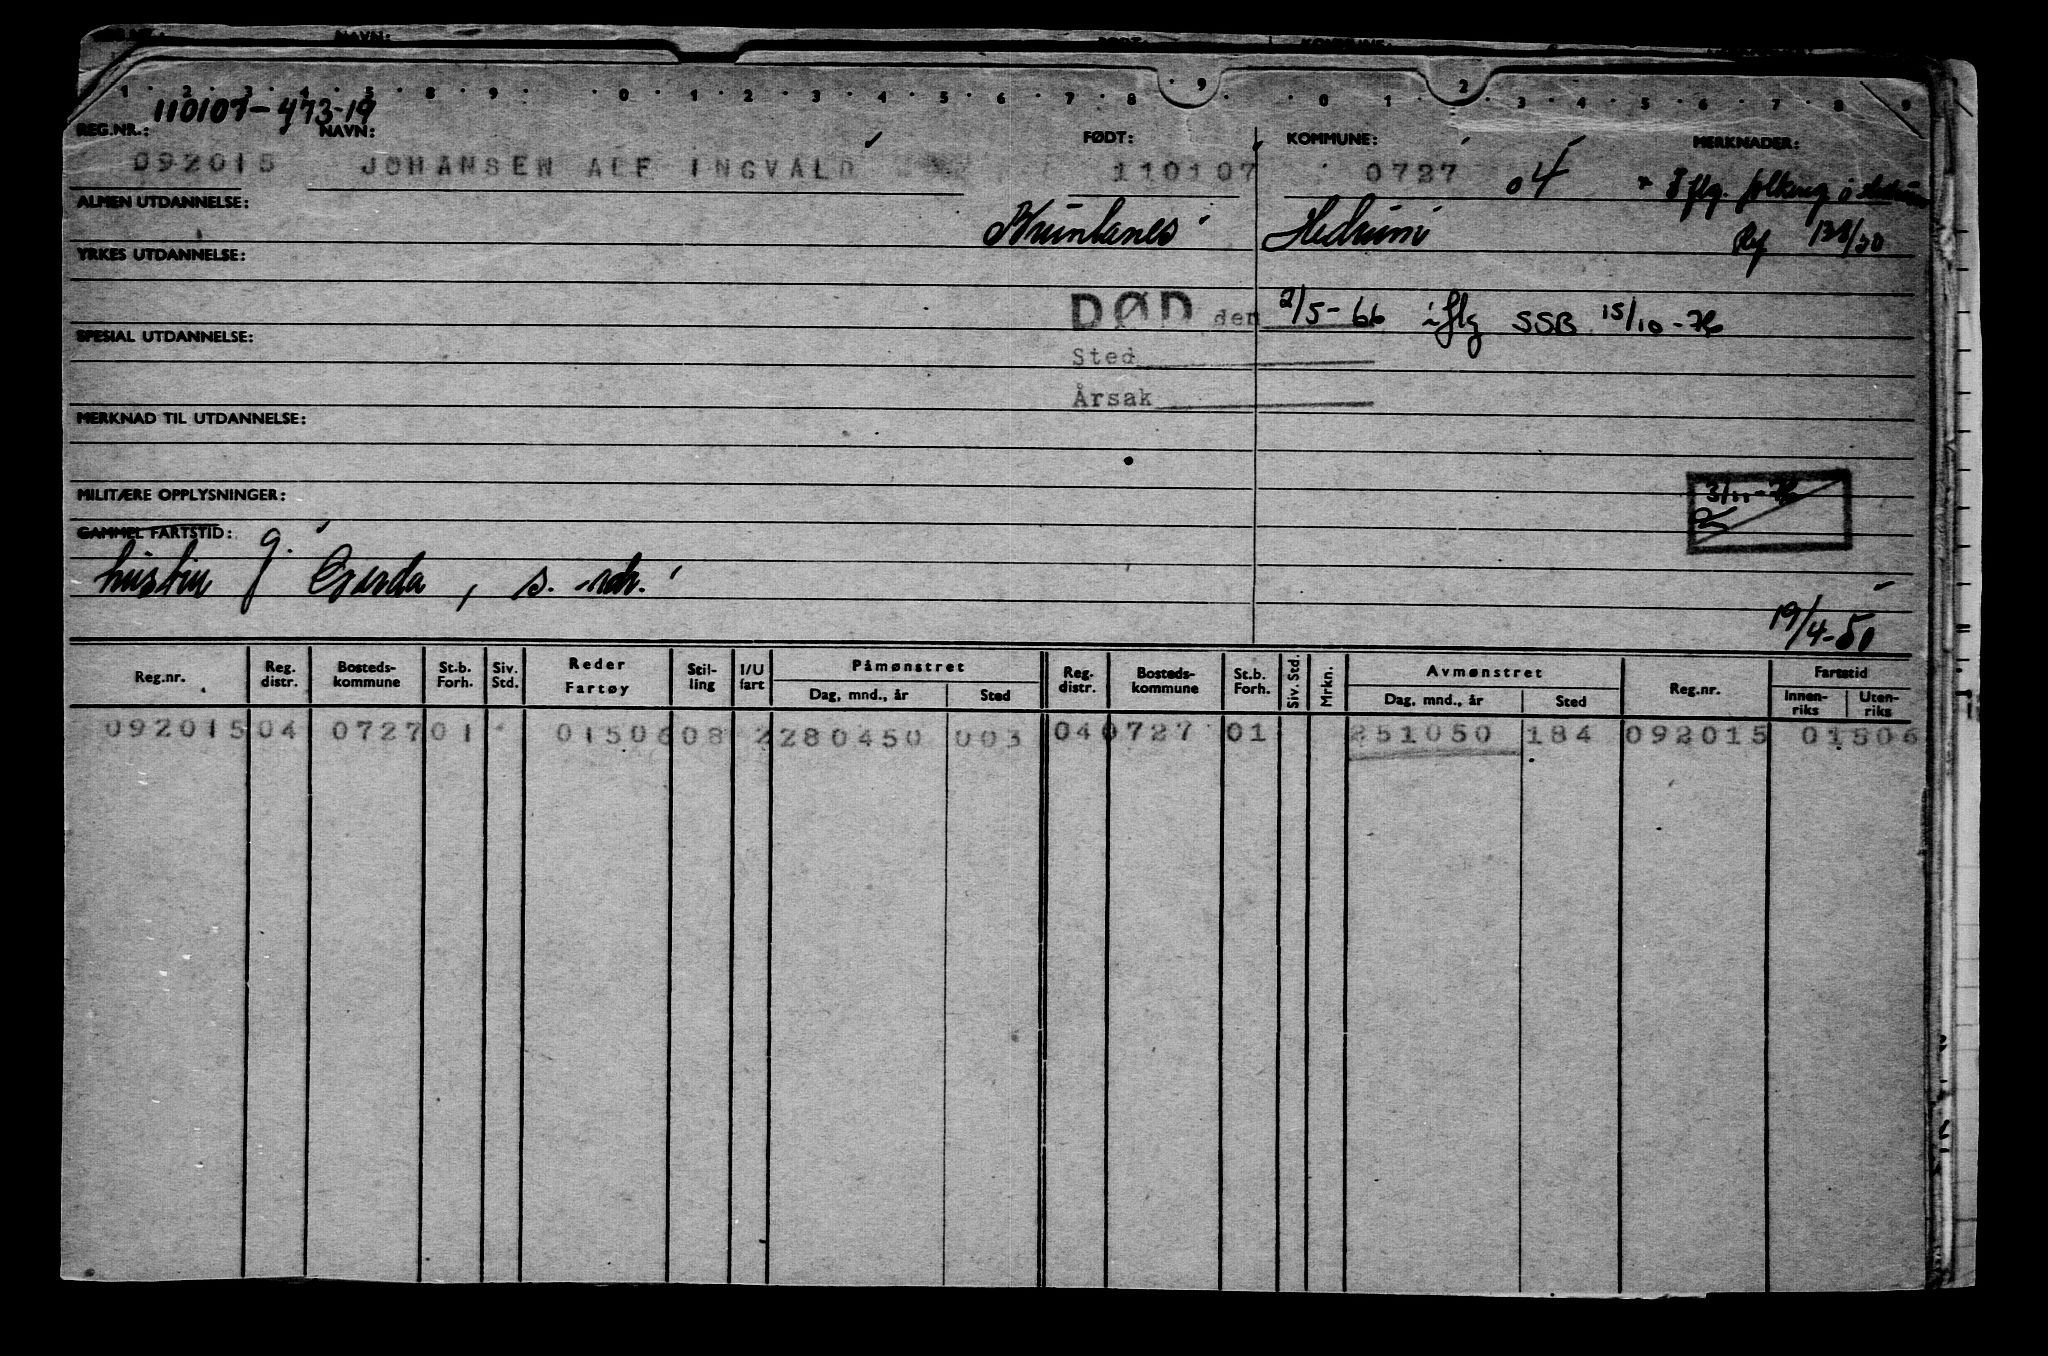 1 2 3 4 5 8 9 0 1 2 3 4 5 6 7 8 9 0 1 2 3 4 5 6 7 8 9
110107-473-19
REG.NR.: NAVN: FØDT: KOMMUNE: MERKNADER:
092015 JOHANSEN ALF INGVALD 110107 0727 04
ALMEN UTDANNELSE:
Hedrum
YRKES UTDANNELSE:
DØD den 2/5-66 iflg SSB 15/10-76
SPESIAL UTDANNELSE:
Sted
Årsak
MERKNAD TIL UTDANNELSE:
MILITÆRE OPPLYSNINGER:
3/11-76
GAMMEL FARTSTID:
hustru g. Gerda, s. adr.
19/4-50
Reg.nr. Reg. distr. Bosteds-kommune St.b. Forh. Siv. Std. Reder Fartøy Stil-ling I/U fart Påmønstret Dag, mnd., år Sted Reg. distr. Bosteds-kommune St.b. Forh. Siv. Std. Mrkn. Avmønstret Dag, mnd., år Sted Reg.nr. Fartstid Innen-riks Uten-riks
092015 04 0727 01 01506 08 2 280450 003 04 0727 01 251050 184 092015 01506